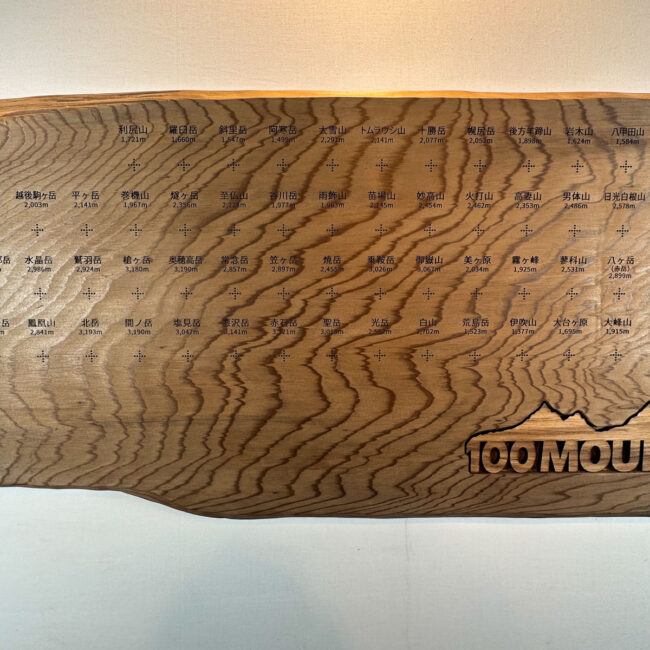 利尻山 羅臼岳 斜里岳 阿寒岳 大雪山 トムラウシ山 十勝岳 幌尻岳 後方羊蹄山 岩木山 八甲田山
1,721m 1,660m 1,547m 1,499m 2,291m 2,141m 2,077m 2,052m 1,898m 1,624m 1,584m
越後駒ヶ岳 平ヶ岳 巻機山 燧ヶ岳 至仏山 谷川岳 雨飾山 苗場山 妙高山 火打山 高妻山 男体山 日光白根山
2,003m 2,141m 1,967m 2,356m 2,228m 1,977m 1,963m 2,145m 2,454m 2,462m 2,353m 2,486m 2,578m
水晶岳 鷲羽岳 槍ヶ岳 奥穂高岳 常念岳 笠ヶ岳 焼岳 乗鞍岳 御嶽山 美ヶ原 霧ヶ峰 蓼科山 八ヶ岳
(赤岳)
2,986m 2,924m 3,180m 3,190m 2,857m 2,897m 2,455m 3,026m 3,067m 2,034m 1,925m 2,531m 2,899m
鳳凰山 北岳 間ノ岳 塩見岳 悪沢岳 赤石岳 聖岳 光岳 白山 荒島岳 伊吹山 大台ヶ原 大峰山
2,841m 3,193m 3,190m 3,047m 3,141m 3,121m 3,013m 2,592m 2,702m 1,523m 1,377m 1,695m 1,915m
100 MOU